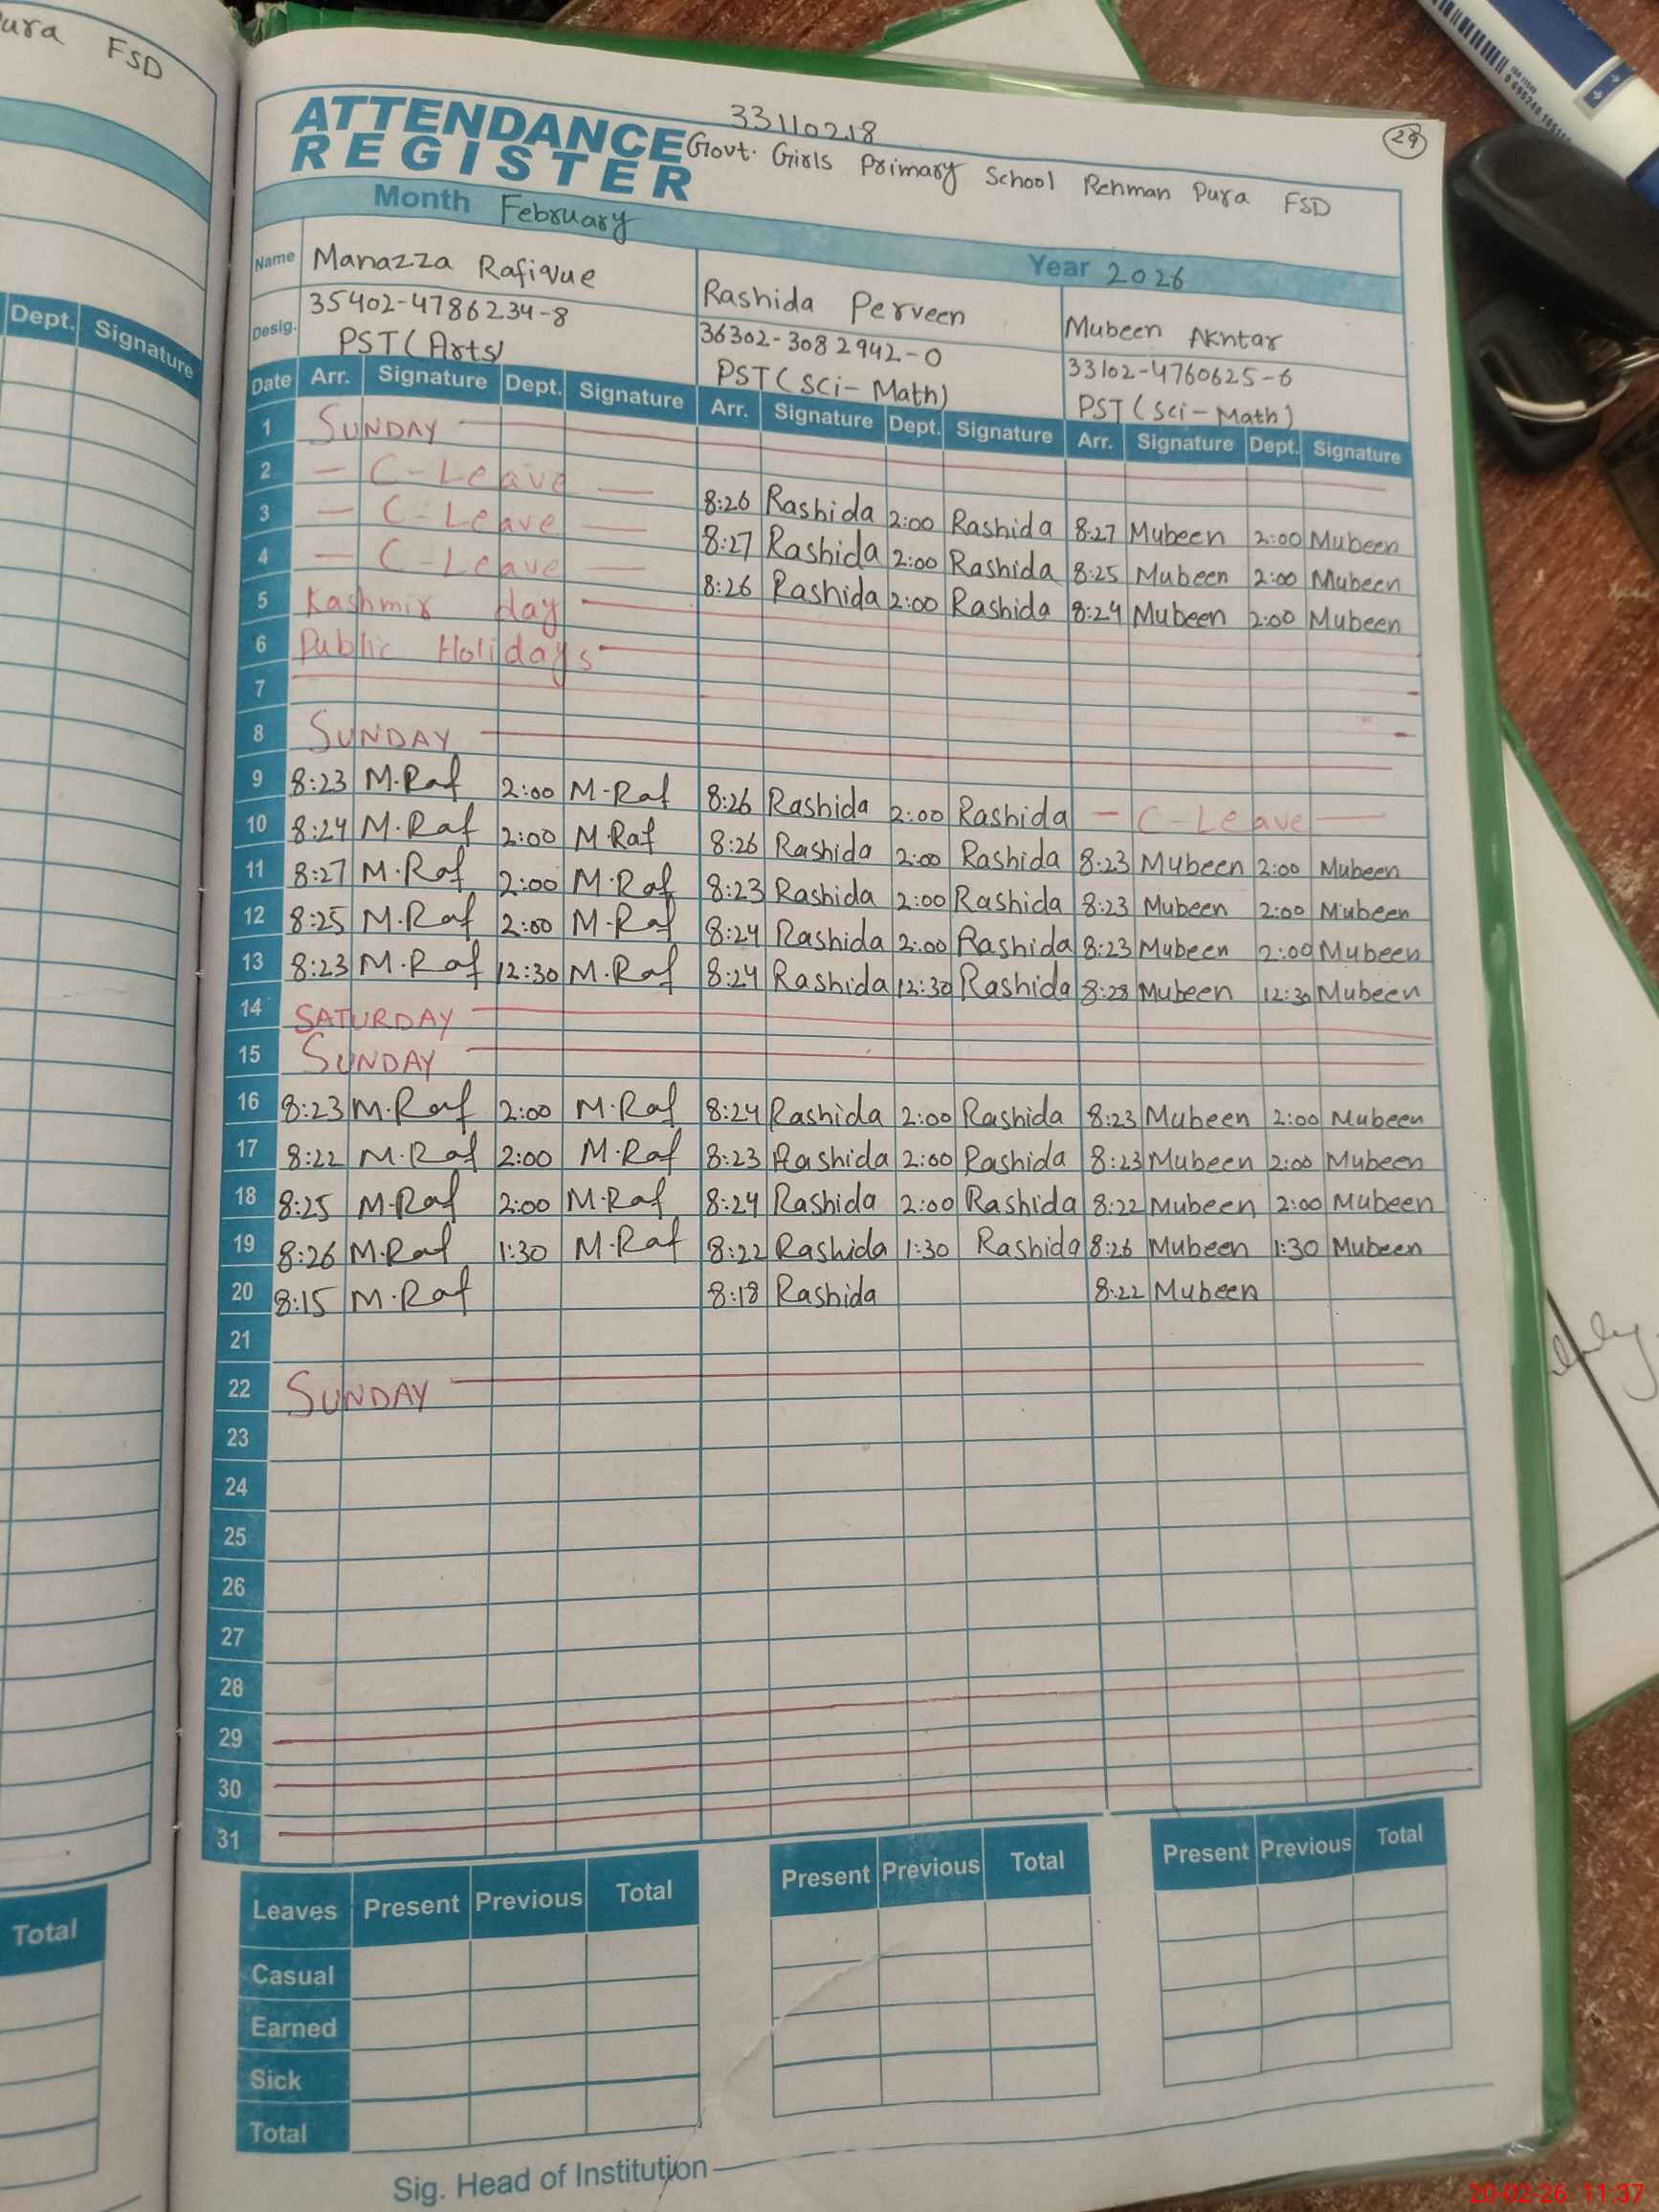 ura FSD
33110218
29
ATTENDANCE
REGISTER
Govt. Girls Primary School Rehman Pura FSD
Month February
Year 2026
Name Manazza Rafique Rashida Perveen Mubeen Akhtar
35402-4786234-8 36302-3082942-0 33102-4760625-6
Desig. PST (Arts) PST (Sci-Math) PST (Sci-Math)
Dept. Signature
Date Arr. Signature Dept. Signature Arr. Signature Dept. Signature Arr. Signature Dept. Signature
1 SUNDAY
2 - C-Leave - 8:26 Rashida 2:00 Rashida 8:27 Mubeen 2:00 Mubeen
3 - C-Leave - 8:27 Rashida 2:00 Rashida 8:25 Mubeen 2:00 Mubeen
4 - C-Leave - 8:26 Rashida 2:00 Rashida 8:24 Mubeen 2:00 Mubeen
5 Kashmir day
6 Public Holidays
7
8 SUNDAY
9 8:23 M.Raf 2:00 M-Raf 8:26 Rashida 2:00 Rashida - C-Leave -
10 8:24 M.Raf 2:00 M Raf 8:26 Rashida 2:00 Rashida 8:23 Mubeen 2:00 Mubeen
11 8:27 M.Raf 2:00 M.Raf 8:23 Rashida 2:00 Rashida 8:23 Mubeen 2:00 Mubeen
12 8:25 M.Raf 2:00 M.Raf 8:24 Rashida 2:00 Rashida 8:23 Mubeen 2:00 Mubeen
13 8:23 M.Raf 12:30 M.Raf 8:24 Rashida 12:30 Rashida 8:28 Mubeen 12:30 Mubeen
14 SATURDAY
15 SUNDAY
16 8:23 M.Raf 2:00 M.Raf 8:24 Rashida 2:00 Rashida 8:23 Mubeen 2:00 Mubeen
17 8:22 M.Raf 2:00 M.Raf 8:23 Rashida 2:00 Rashida 8:23 Mubeen 2:00 Mubeen
18 8:25 M.Raf 2:00 M.Raf 8:24 Rashida 2:00 Rashida 8:22 Mubeen 2:00 Mubeen
19 8:26 M.Raf 1:30 M.Raf 8:22 Rashida 1:30 Rashida 8:26 Mubeen 1:30 Mubeen
20 8:15 M.Raf 8:18 Rashida 8:22 Mubeen
21
22 SUNDAY
23
24
25
26
27
28
29
30
31
Total
Leaves Present Previous Total Present Previous Total Present Previous Total
Casual
Earned
Sick
Total
Sig. Head of Institution
20-02-26 11:37